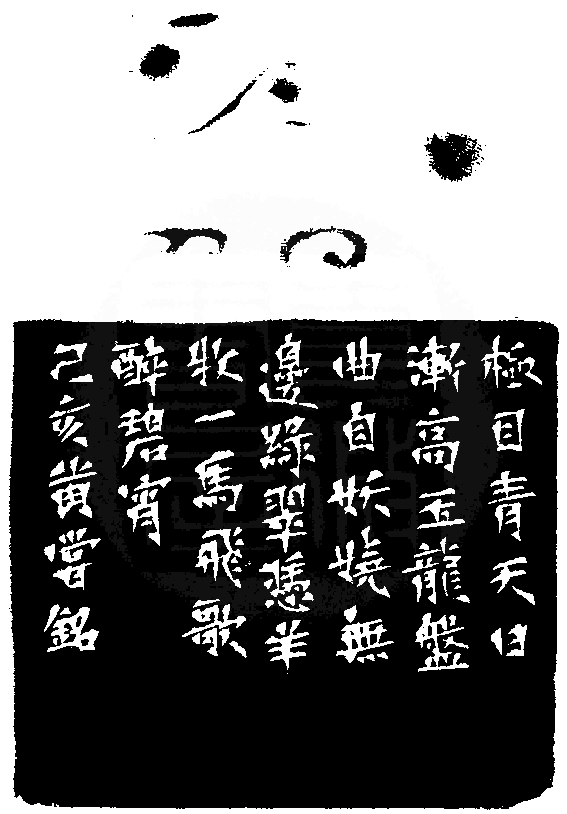 極目青天日
漸高玉龍盤
曲自妖嬈無
邊綠翠憑羊
牧一馬飛歌
醉碧宵
己亥黃嘗銘